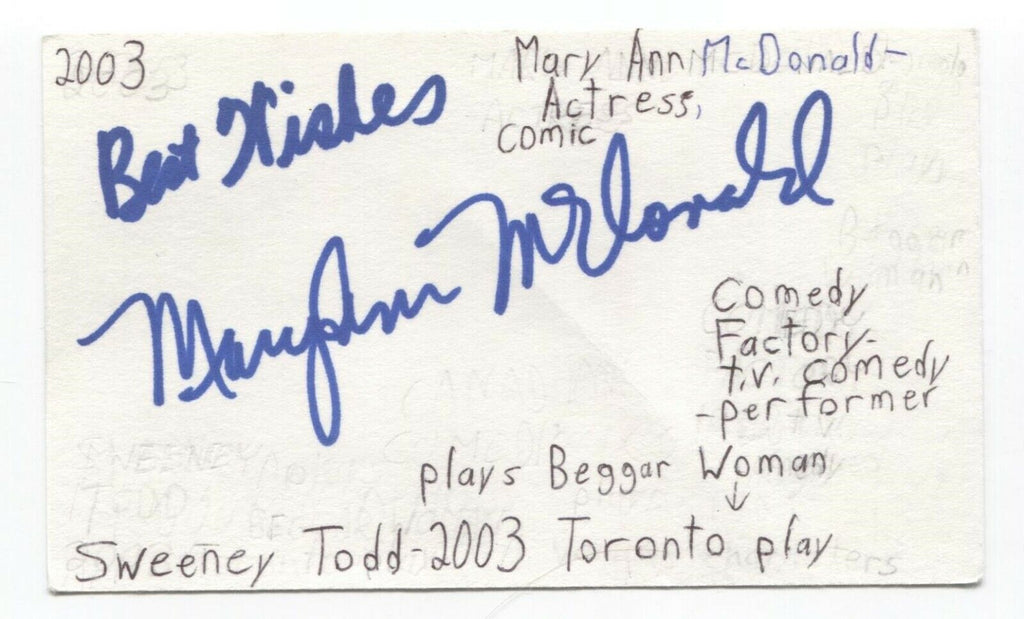 2003
Mary Ann McDonald-
Actress,
Comic
Best Wishes
Maryann McDonald
Comedy
Factory-
t.v. comedy
-performer
plays Beggar Woman
↓
Sweeney Todd-2003 Toronto play